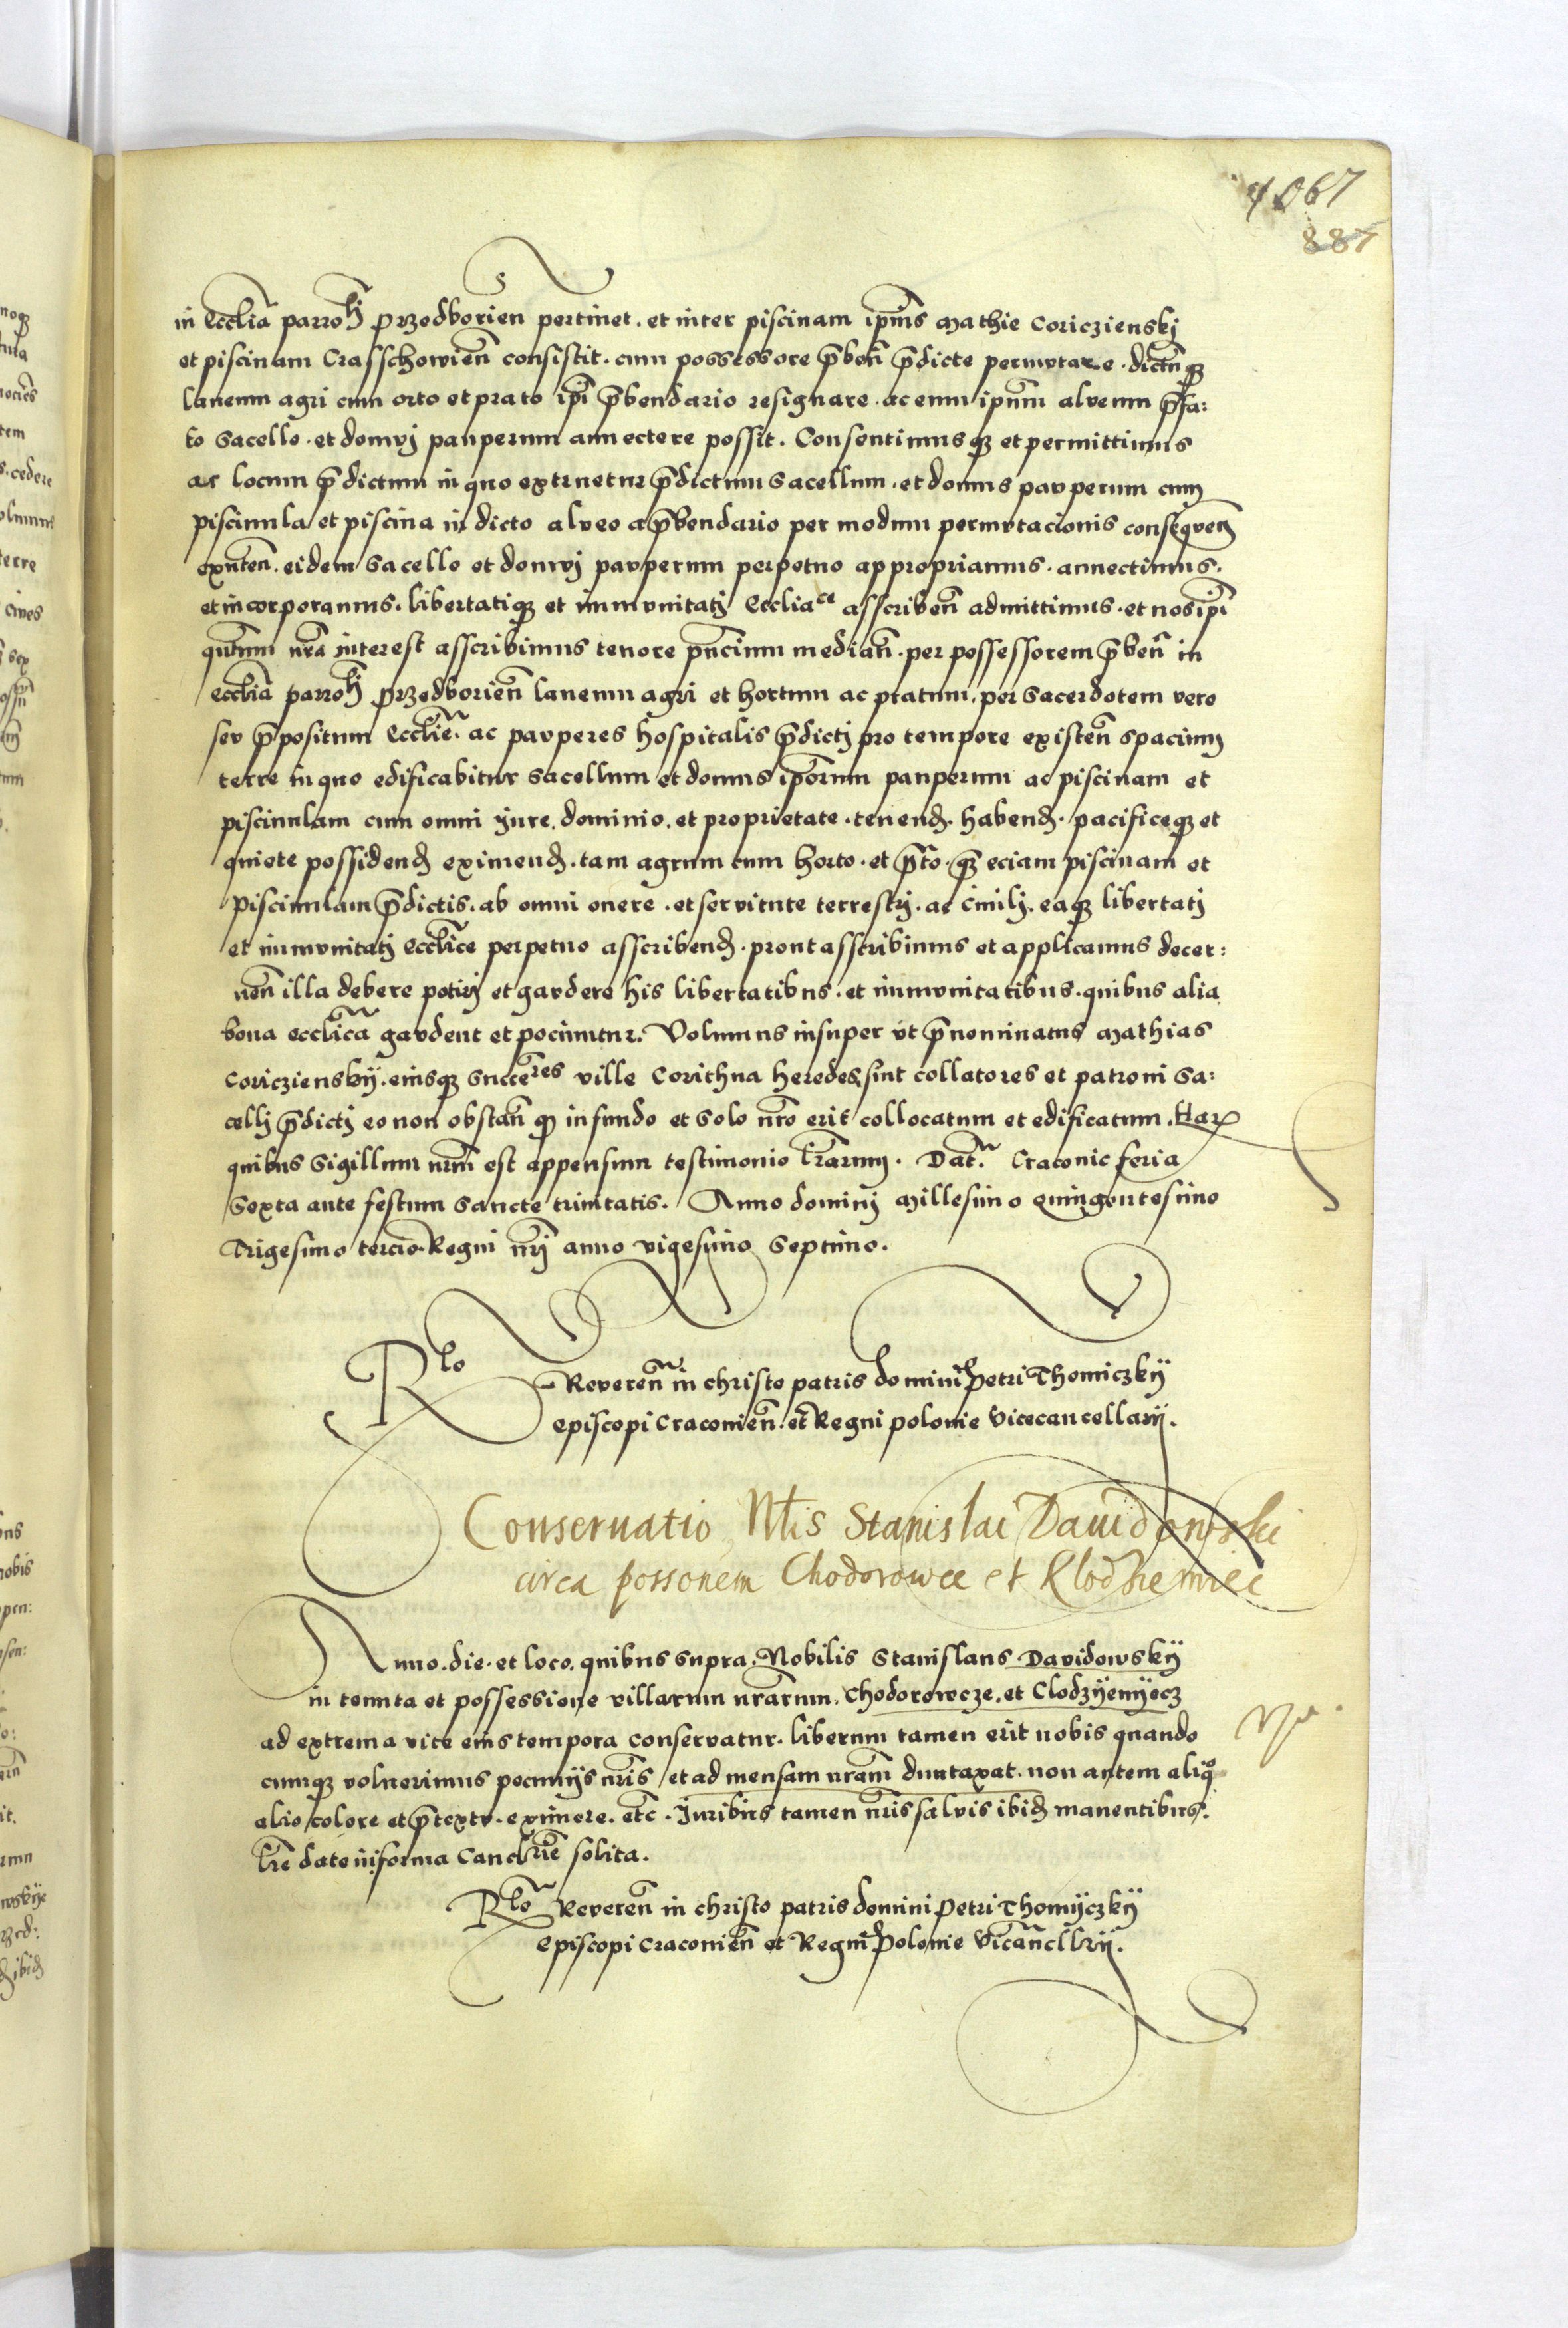 4067
887
in Ecclia parroh Przedborien pertinet. et inter piscinam ipius Mathie Coriczienskj
et piscinam Crasschowien consistit. cum possessore pben pdicte permutare. dictumq
laneum agri cum orto et prato ipi pbendario resignare. ac eum ipum alveum pfa:
to sacello. et domuj pauperum annectere possit. Consentimusq et permittimus
ac locum pdictum in quo extruetur pdictum sacellum. et domus pauperum cum
piscinula et piscina in dicto alveo a pbendario per modum permutacionis consequen
exnten. eidem sacello et domuj pauperum perpetuo appropriamus. annectimus.
et incorporamus. libertatiq et immunitatj Eccliace asscriben admittimus. et nos ipi
qntum nra interest asscribimus tenore pncium median. per possessorem pben in
ecclia parroh Przedborien laneum agri et hortum ac pratum. per sacerdotem vero
seu ppositum Ecclie. ac pauperes hospitalis pdictj pro tempore existen spacium
terre in quo edificabitur sacellum et domus iporum pauperum ac piscinam et
piscinulam cum omni jure. dominio. et proprietate. tenend. habend. pacificeq et
quiete possidend eximend. tam agrum cum horto. et pto. q eciam piscinam et
piscinulam pdictis. ab omni onere. et servitute terrestrj. ac civilj. eaq libertatj
et immunitatj Ecclice perpetuo asscribend. prout asscribimus et applicamus decer:
nen illa debere potirj et gaudere his libertatibus. et immunitatibus. quibus alia
bona ecclica gaudent et pociuntur. Volumus insuper ut pnominatus Mathias
Coriczienskÿ. eiusq succeres ville Corithna heredes sint collatores et patroni sa:
cellj pdictj eo non obstan q in fundo et solo nro erit collocatum et edificatum. Har
quibus sigillum nrm est appensum testimonio lrarum. Dat. Craconie feria
sexta ante festum Sancte trinitatis. Anno dominj Millesimo Quingentesimo
Trigesimo tercio. Regni nrj anno vigesimo septimo.
Rlo Reveren in christo patris domini Petri Thomiczkÿ
episcopi Craconien. et Regni polonie Vicecancellarij.
Conseruatio Nlis Stanislai Dauidowski
circa possonem Chodorowce et Klodzieniec
Anno. die. et loco. quibus supra. Nobilis Stanislaus Davidowskÿ
in tenuta et possessione villarum nrarum. Chodorowcze. et Clodzÿenÿecz
ad extrema vite eius tempora conservatur. liberum tamen erit nobis quando
cumq voluerimus pecunijs nris et ad mensam nram duntaxat. non autem aliqo
alio colore et ptextu. eximere. etc. Juribus tamen nris salvis ibid manentibus.
lre date in forma Canclrie solita.
Rlo Reveren in christo patris domini Petri Thomÿczkÿ
episcopi Craconien et Regni Polonie Vicanclrij.